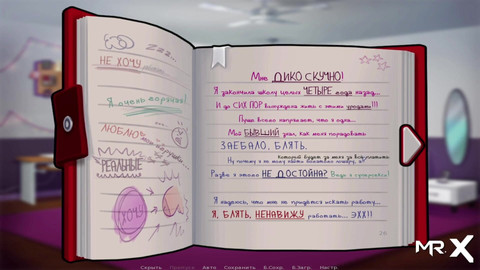 Zzz...
НЕ ХОЧУ
Я очень горячая!
ЛЮБЛЮ
РЕАЛЬНЫЕ
ХОЧУ
Мне ДИКО СКУЧНО!
Я закончила школу целых ЧЕТЫРЕ года назад...
И до СИХ ПОР вынуждена жить с этими уродами!!!
Пуще всего напрягает, что я одна...
Мой БЫВШИЙ знал, как меня порадовать
ЗАЕБАЛО, БЛЯТЬ.
Который будет за меня
Ну почему я не могу найти
Разве я этого НЕ ДОСТОЙНА? Ведь я
Я надеюсь, что мне не придётся искать работу...
Я, БЛЯТЬ, НЕНАВИЖУ работать... ЭХХ!!
Скрыть Пропуск Авто Сохранить Б.Сохр. Б.Загр. Настр
MR. X